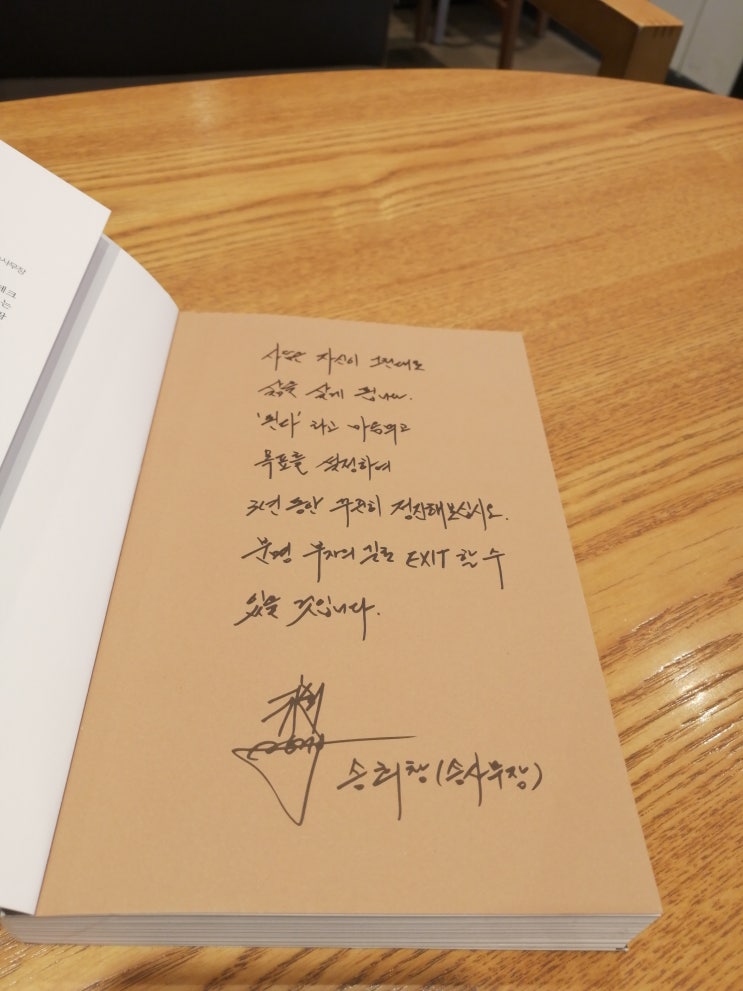 사무장
테크
는
사람은 자신이 그린대로
삶을 살게 됩니다.
'된다' 라고 마음먹고
목표를 설정하여
3년 동안 꾸준히 정진해보십시오.
분명 부자의 길로 EXIT 할 수
있을 것입니다.
송희창(송사무장)